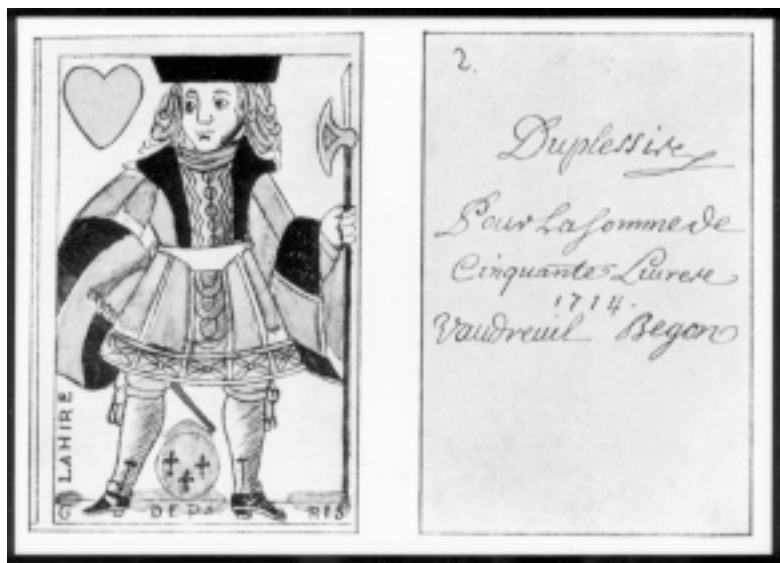 LAHIRE
G DE PA RIS
2.
Duplessise
Pour La Somme de
Cinquantes Liurese
1714.
Vaudreuil Begon